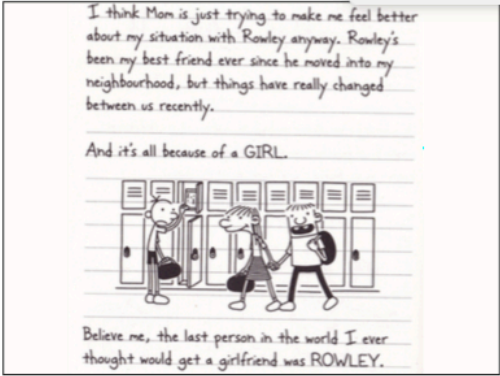 I think Mom is just trying to make me feel better
about my situation with Rowley anyway. Rowley's
been my best friend ever since he moved into my
neighbourhood, but things have really changed
between us recently.
And it's all because of a GIRL.
Believe me, the last person in the world I ever
thought would get a girlfriend was ROWLEY.